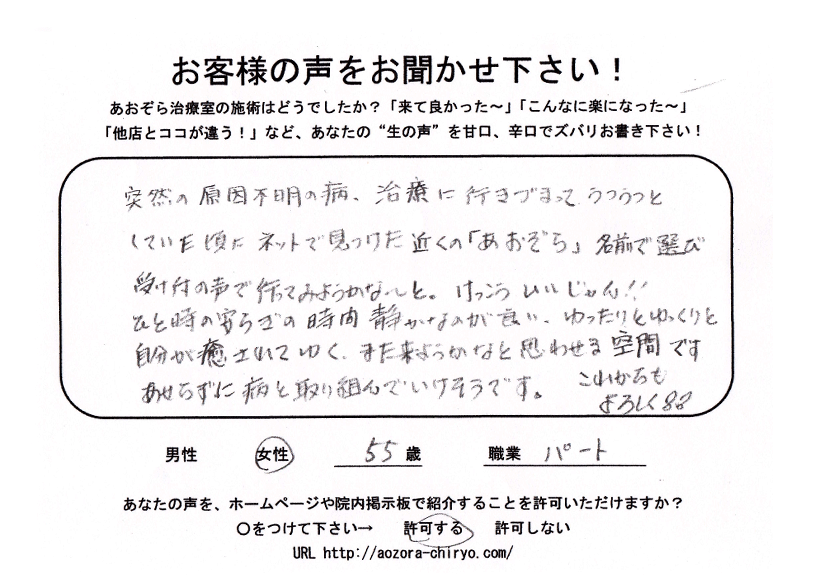 お客様の声をお聞かせ下さい！
あおぞら治療室の施術はどうでしたか？「来て良かった～」「こんなに楽になった～」
「他店とココが違う！」など、あなたの“生の声”を甘口、辛口でズバリお書き下さい！
突然の原因不明の病、治療に行きづまって、うつうつと
していた頃に ネットで見つけた 近くの「あおぞら」 名前で選び
受け付の声で行ってみようかな～と。けっこう いいじゃん!!
ひと時の安らぎの時間 静かなのが良い、ゆったりとゆっくりと
自分が癒されてゆく、また来ようかなと思わせる空間です
あせらずに病と取り組んでいけそうです。 これからも
よろしく
男性 女性 55歳 職業 パート
あなたの声を、ホームページや院内掲示板で紹介することを許可いただけますか？
〇をつけて下さい→ 許可する 許可しない
URL http://aozora-chiryo.com/